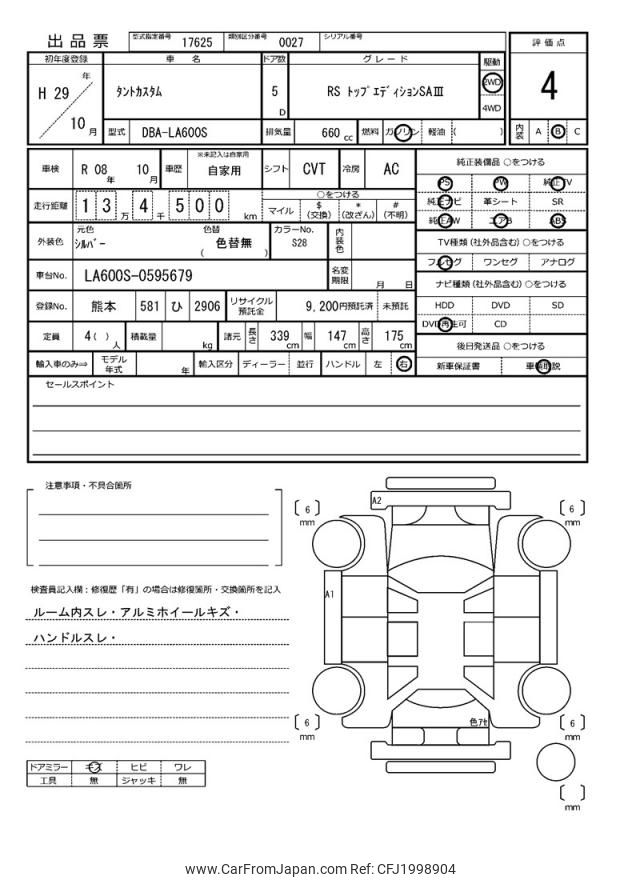 出品票
型式指定番号 17625 類別区分番号 0027 シリアル番号
初年度登録 車名 ドア数 グレード 駆動 評価点
H 29 年 10 月
タントカスタム 5 D RS トップエディションSAⅢ 2WD 4WD 4
型式 DBA-LA600S 排気量 660 cc 燃料 ガソリン 軽油 ( ) 内装 A B C
車検 R 08 年 10 月 車歴 ※未記入は自家用 自家用 シフト CVT 冷房 AC
純正装備品 ○をつける
PS PW 純正TV
純正ナビ 革シート SR
純正AW エアB ABS
走行距離 1 3 万 4 千 5 0 0 km
○をつける
マイル $ (交換) * (改ざん) # (不明)
外装色 元色 シルバー 色替 色替無 ( ) カラーNo. S28 内装色
TV種類 (社外品含む) ○をつける
フルセグ ワンセグ アナログ
車台No. LA600S-0595679 名変期限 月 日
ナビ種類 (社外品含む) ○をつける
HDD DVD SD
DVD再生可 CD
登録No. 熊本 581 ひ 2906 リサイクル預託金 9,200円預託済 未預託
定員 4( ) 人 積載量 kg 諸元 長さ 339 cm 幅 147 cm 高さ 175 cm
後日発送品 ○をつける
新車保証書 車輌取説
輸入車のみ⇒ モデル年式 年 輸入区分 ディーラー 並行 ハンドル 左 右
セールスポイント
注意事項・不具合箇所
検査員記入欄:修復歴「有」の場合は修復箇所・交換箇所を記入
ルーム内スレ・アルミホイールキズ・
ハンドルスレ・
ドアミラー キズ ヒビ ワレ
工具 無 ジャッキ 無
A2
6 mm
6 mm
A1
色アセ
6 mm
6 mm
mm
www.CarFromJapan.com Ref: CFJ1998904